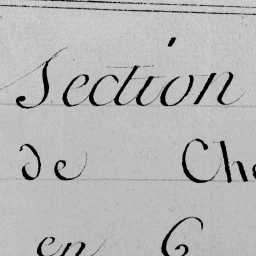 Section
de Che
en 6